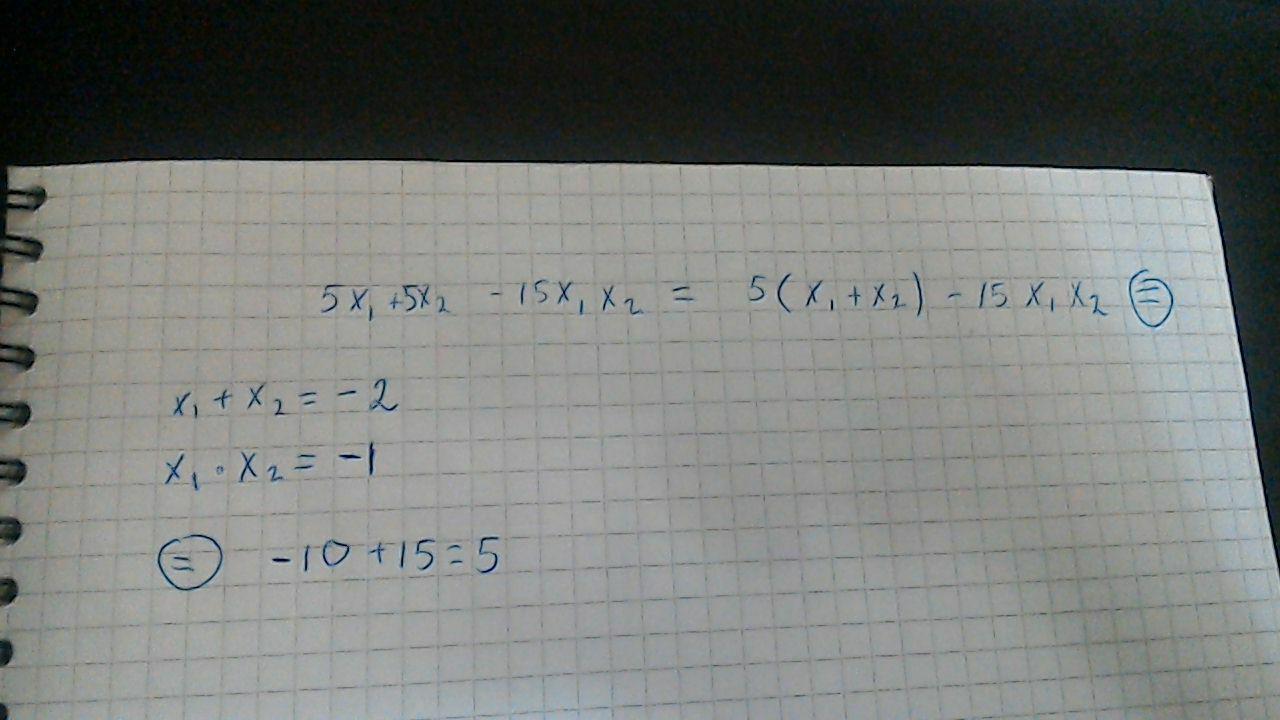 5x₁+5x₂ -15x₁x₂ = 5(x₁+x₂)-15x₁x₂ ⊜
x₁+x₂=-2
x₁·x₂=-1
⊜ -10+15=5